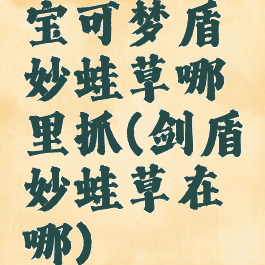 宝可梦盾
妙蛙草哪
里抓(剑盾
妙蛙草在
哪)